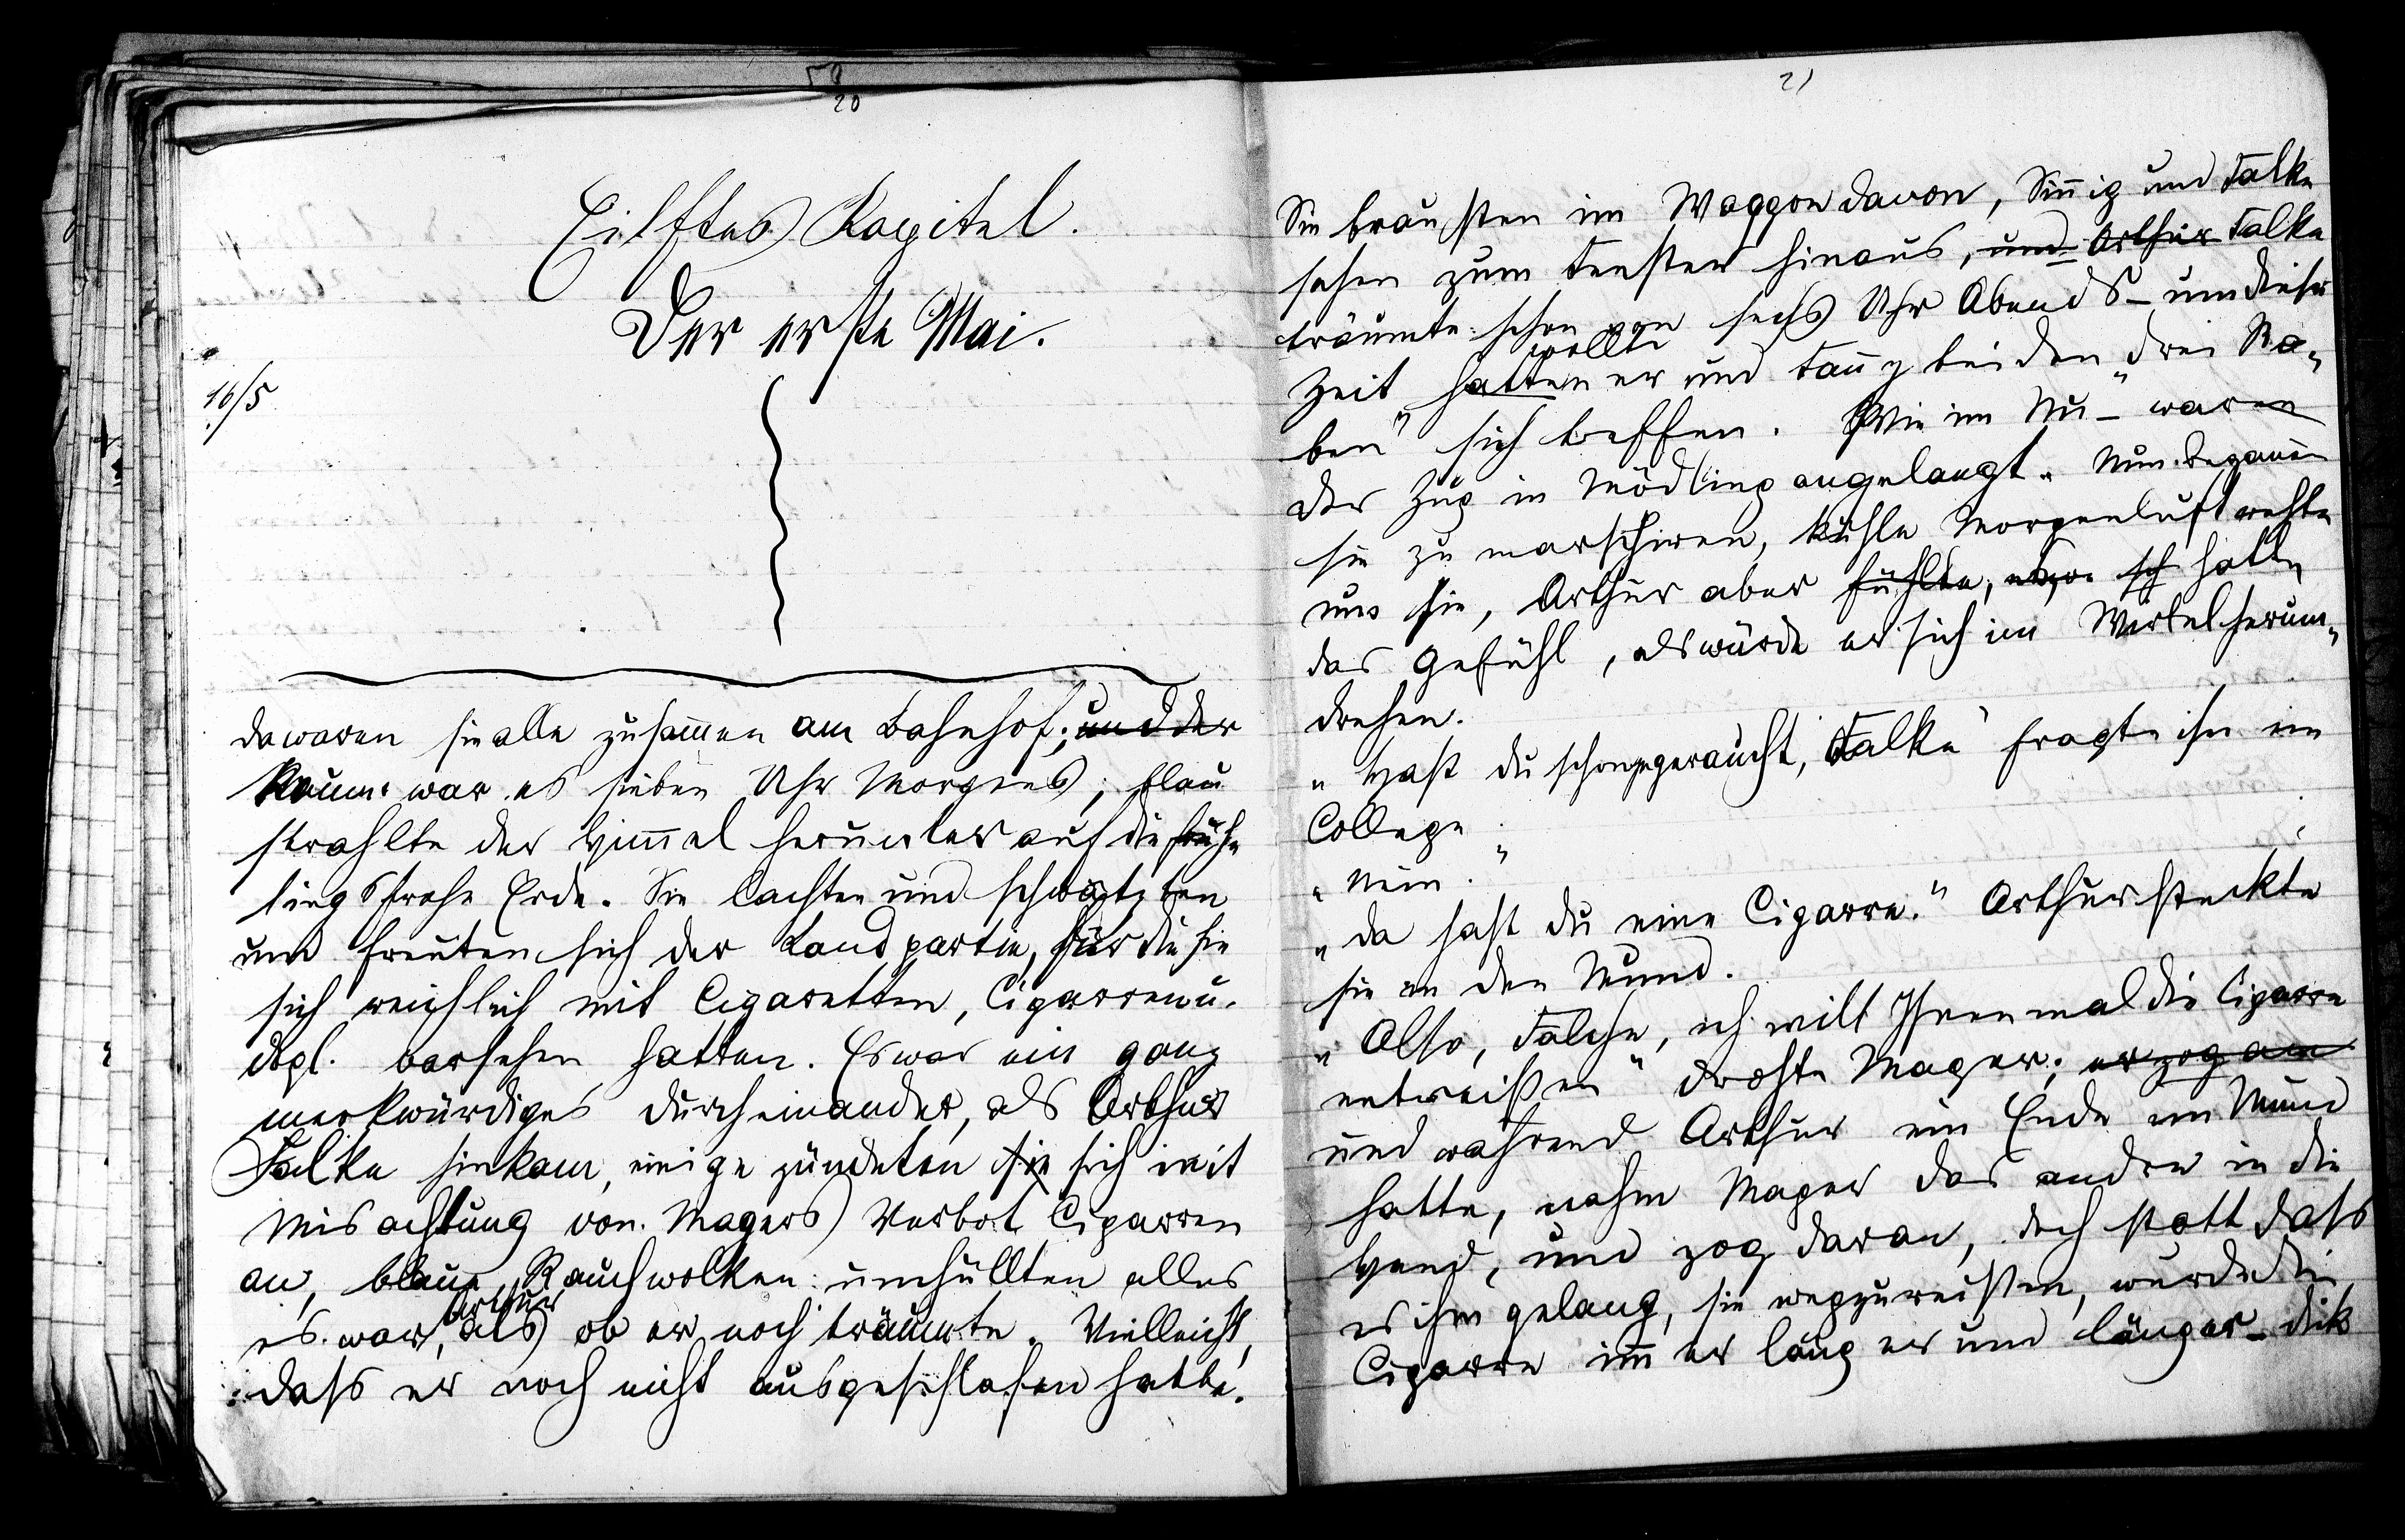 20
Eilftes Kapitel.
Der erste Mai.
16/5
Da waren sie alle zusammen am Bahnhof; und der
Kaum war es sieben Uhr Morgens; blau
strahlte der Himmel herunter auf die früh-
lingsfrohe Erde. Sie lachten und schwatzten
und freuten sich der Landpartie, für die sie
sich reichlich mit Cigaretten, Cigarren u.
dgl. versehen hatten. Es war ein ganz
merkwürdiges Durcheinander, als Arthur
Falke hinkam, einige zündeten sie sich mit
Misachtung von Magers Verbot Cigarren
an, blaue Rauchwolken umhüllten alles
es war, Arthur als ob er noch träumte. Vielleicht,
dass er noch nicht ausgeschlafen hatte.
21
Sie brausten im Waggon davon, Sinnig und Falke
sahen zum Fenster hinaus, und Arthur Falke
träumte schon von sechs Uhr Abends – um diese
wollte
Zeit hatten er und Fanny bei den „drei Ra-
ben" sich treffen. Wie im Nu – waren
der Zug in Mödling angelangt. Nun begannen
sie zu marschiren, kühle Morgenluft wehte
um sie, Arthur aber fühlte, hatte
das Gefühl, als würde er sich im Wirbel herum-
drehen.
„Hast du schon geraucht, Falke" fragte ihn ein
College.
„Nein."
„Da hast du eine Cigarre." Arthur steckte
sie in den Mund.
„Also, Falke, ich will Ihnen mal die Cigarre
entreißen" drohte Mager; er zog an
und während Arthur ein Ende im Mund
hatte, nahm Mager das andre in die
Hand, und zog daran, doch statt dass
es ihm gelang, sie wegzureißen, wurde die
Cigarre immer länger und länger – dik